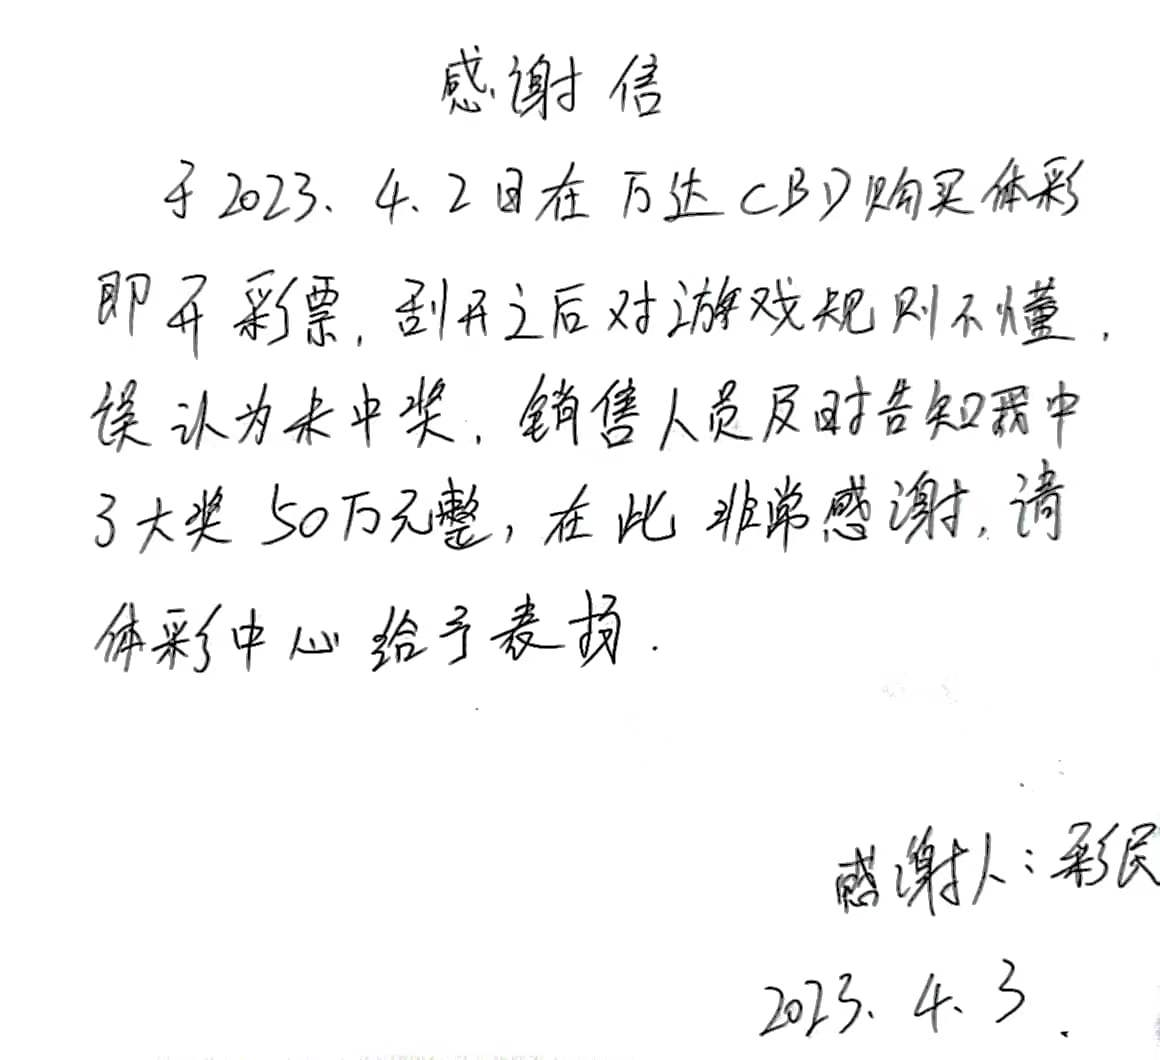 感谢信
于2023.4.2日在万达CBD购买体彩
即开彩票,刮开之后对游戏规则不懂,
误认为未中奖,销售人员及时告知我中
了大奖50万元整,在此非常感谢,请
体彩中心给予表扬.
感谢人:彩民
2023.4.3.